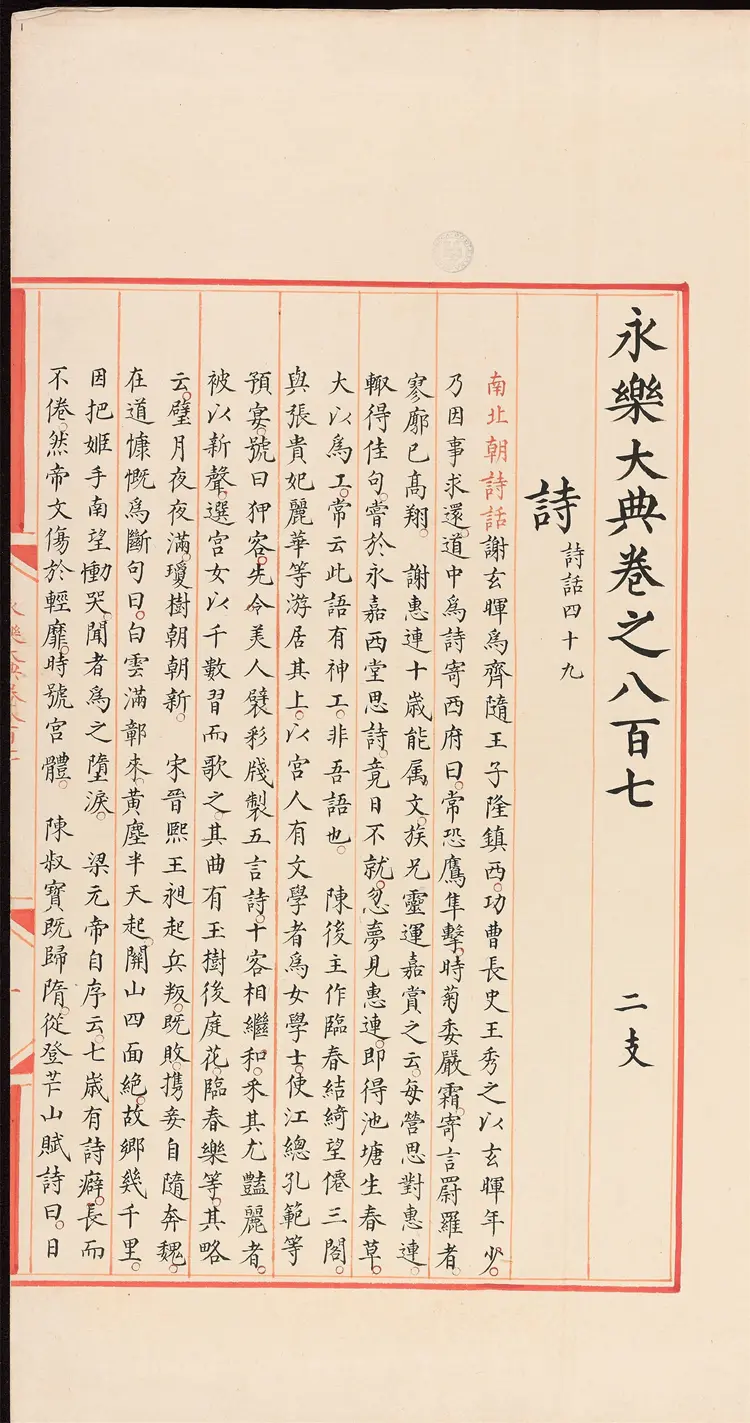 永樂大典卷之八百七 二支
詩 詩話四十九
南北朝詩話謝玄暉爲齊隨王子隆鎮西。功曹長史王秀之以玄暉年少。
乃因事求還。道中爲詩寄西府曰。常恐鷹隼擊。時菊委嚴霜。寄言罻羅者。
寥廓已高翔。 謝惠連十歲能属文。族兄靈運嘉賞之云。每營思對惠連。
輙得佳句。嘗於永嘉西堂思詩。竟日不就。忽夢見惠連。即得池塘生春草。
大以爲工。常云此語有神工。非吾語也。 陳後主作臨春結綺望僊三閣。
與張貴妃麗華等游居其上。以宮人有文學者爲女學士。使江總孔範等
預宴。號曰狎客。先令美人襞彩牋製五言詩。十客相繼和。釆其尤豔麗者。
被以新聲。選宮女以千數習而歌之。其曲有玉樹後庭花。臨春樂等。其略
云。璧月夜夜滿。瓊樹朝朝新。 宋晉熙王昶起兵叛。既敗。携妾自隨奔魏。
在道慷慨爲斷句曰。白雲滿鄣來。黃塵半天起。關山四面絕。故鄉幾千里。
因把姬手南望慟哭。聞者爲之墮淚。 梁元帝自序云。七歲有詩癖。長而
不倦。然帝文傷於輕靡。時號宮體。 陳叔寶既歸隋。從登芒山賦詩曰。日